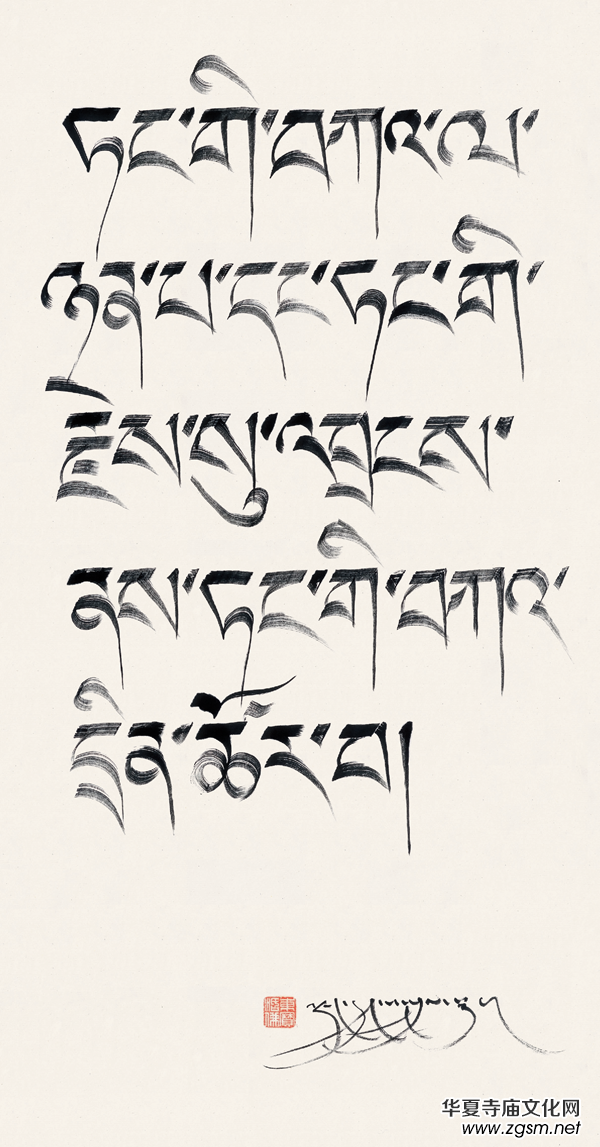 ཏང་གི་བཀའ་ལ་
ཉན་པ་དང་ཏང་གི་
རྗེས་སུ་འབྲངས་
ནས་ཏང་གི་བཀའ་
དྲིན་ཚོར་བ།
华夏寺庙文化网
www.zgsm.net